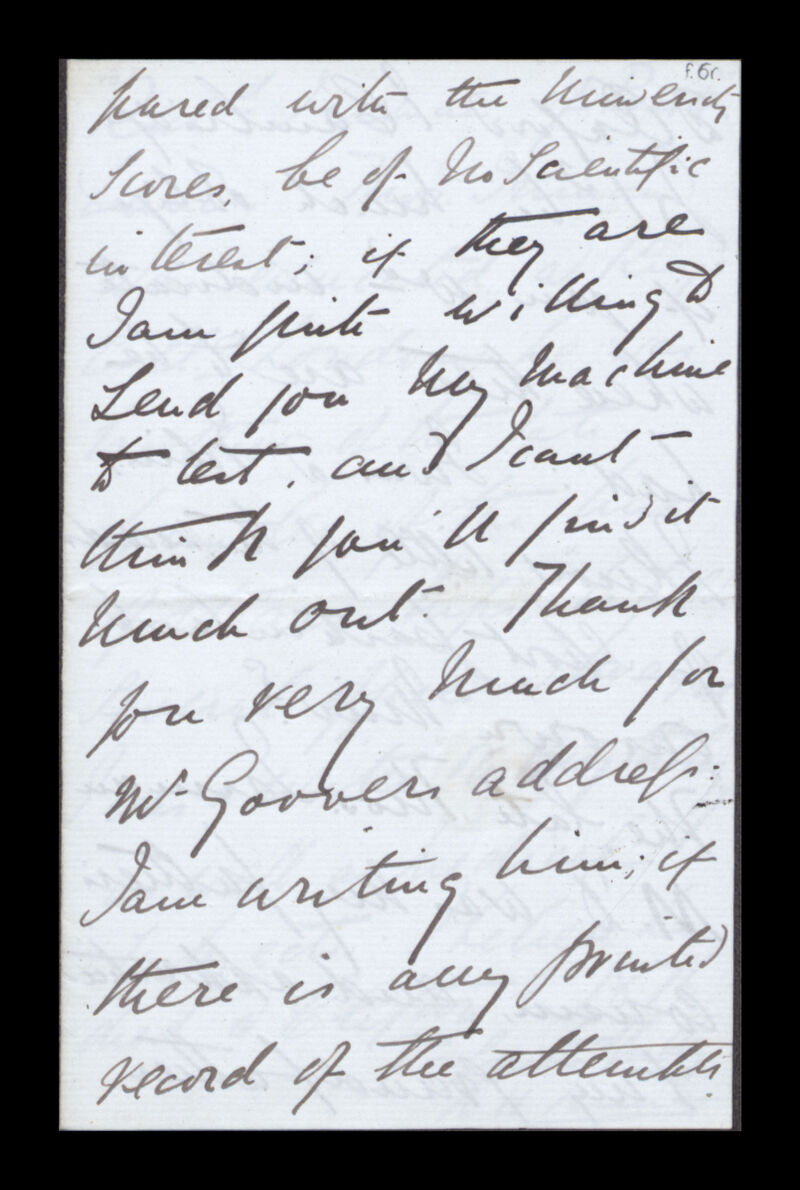 f.6r.
pared with the University
Scores, be of no Scientific
interest; if they are
I am quite willing to
Send you my machine
to test, and I cant
think you'll find it
much out. Thank
you very much for
Mr Groovers address:
I am writing him; if
there is any printed
record of the attempts